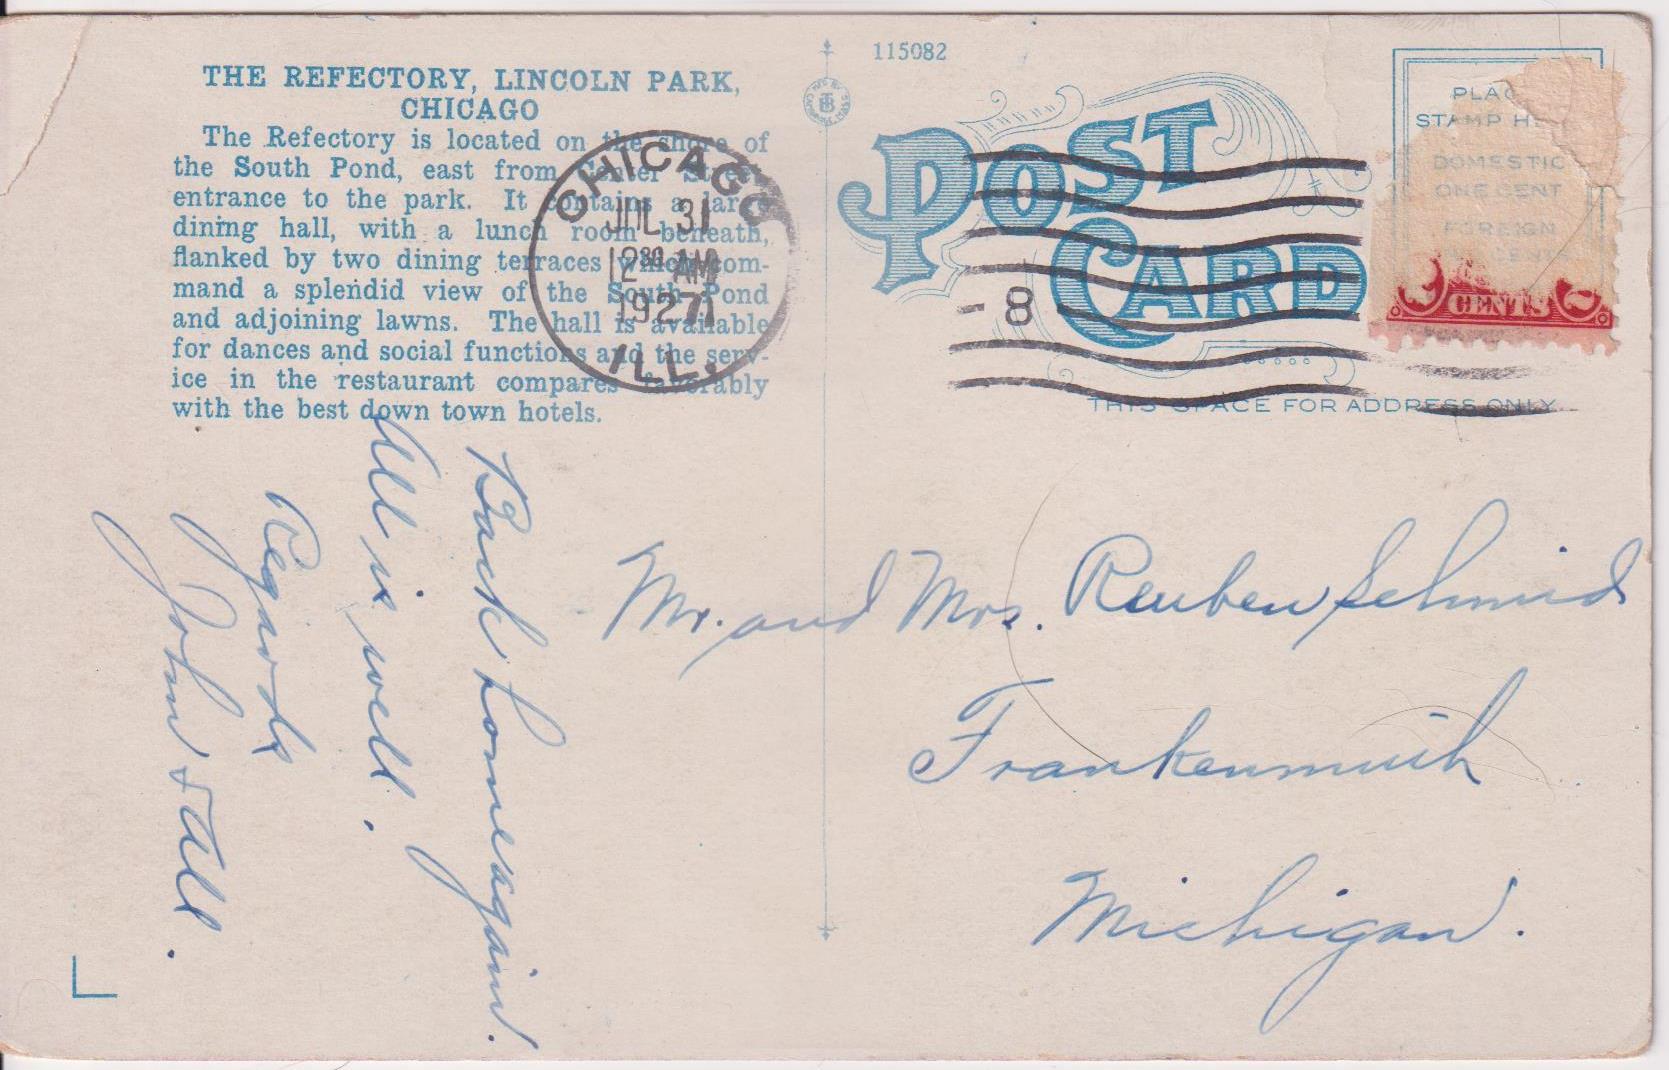 THE REFECTORY, LINCOLN PARK,
CHICAGO
The Refectory is located on the shore of
the South Pond, east from Center Street
entrance to the park. It contains a large
dining hall, with a lunch room beneath,
flanked by two dining terraces which com-
mand a splendid view of the South Pond
and adjoining lawns. The hall is available
for dances and social functions and the serv-
ice in the restaurant compares favorably
with the best down town hotels.
Back home again.
All is well.
Regards
John & All.
115082
POST CARD
CHICAGO
JUL 31
12 30 AM
1927
ILL.
- 8
PLACE
STAMP HERE
DOMESTIC
ONE CENT
FOREIGN
CENTS
2 CENTS 2
THIS SPACE FOR ADDRESS ONLY
Mr. and Mrs. Reuben Schmid
Frankenmuth
Michigan.